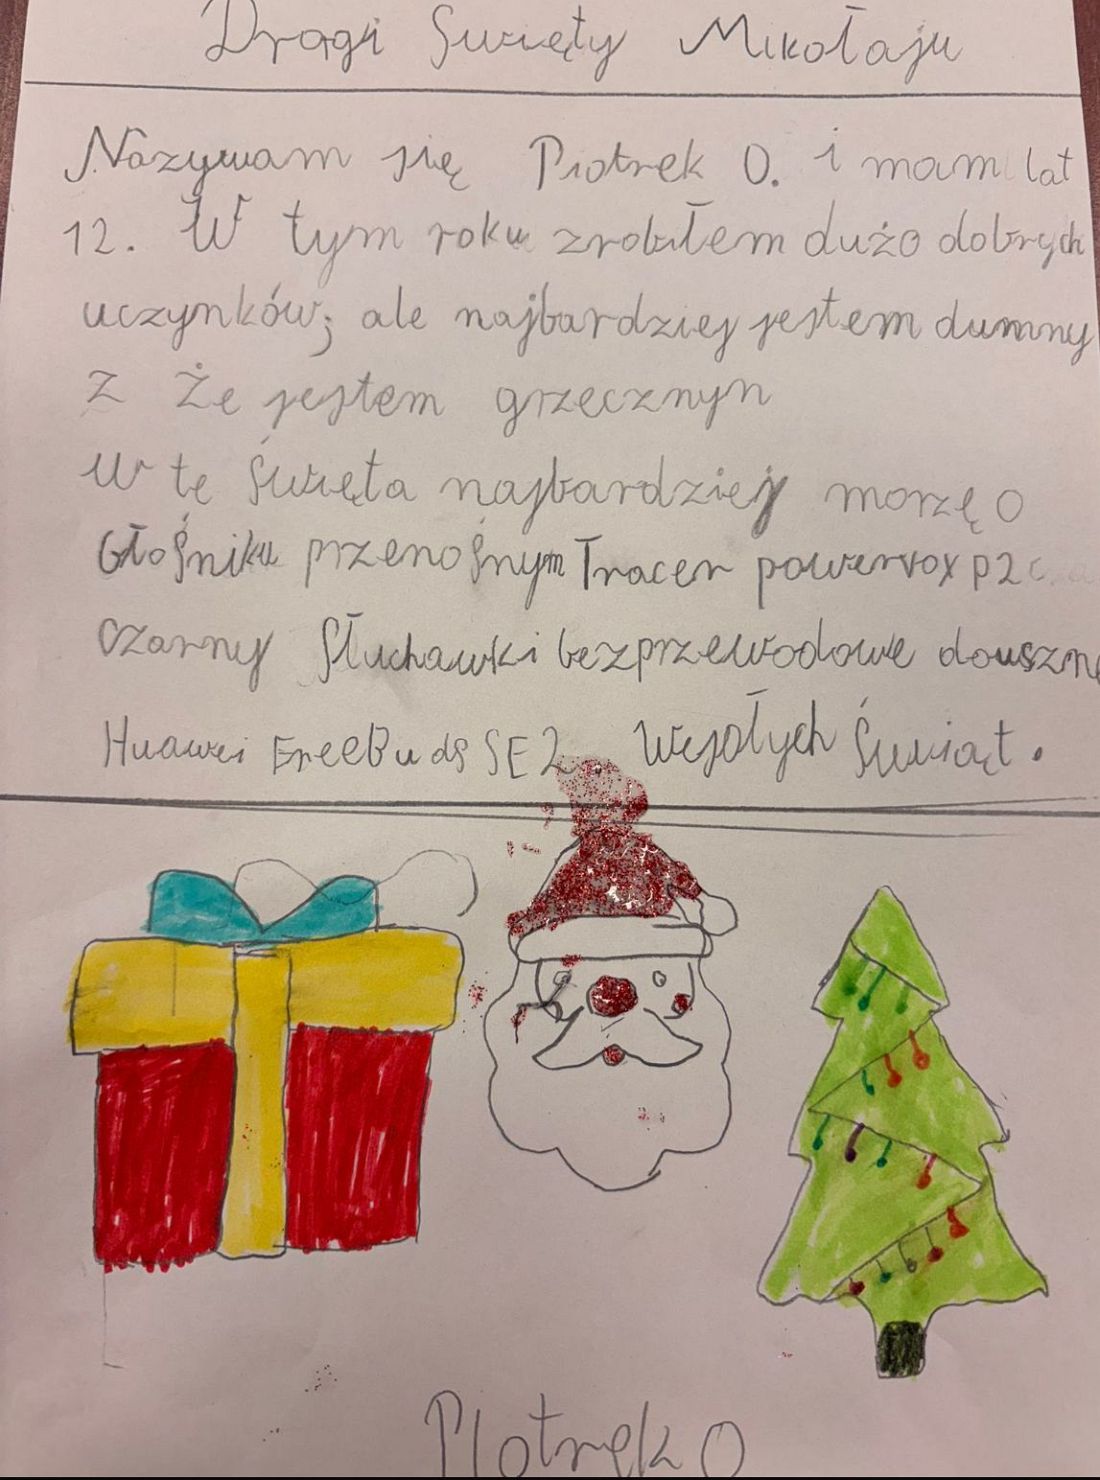 Drogi Święty Mikołaju
Nazywam się Piotrek O. i mam lat
12. W tym roku zrobiłem dużo dobrych
uczynków; ale najbardziej jestem dumny
z że jestem grzecznyn
W tę Święta najbardziej morzę o
Głośniku przenośnym Tracer powervox p2
czarny Słuchawki bezprzewodowe douszne
Huawei FreeBuds SE2. Wesołych Świąt.
Piotrek O